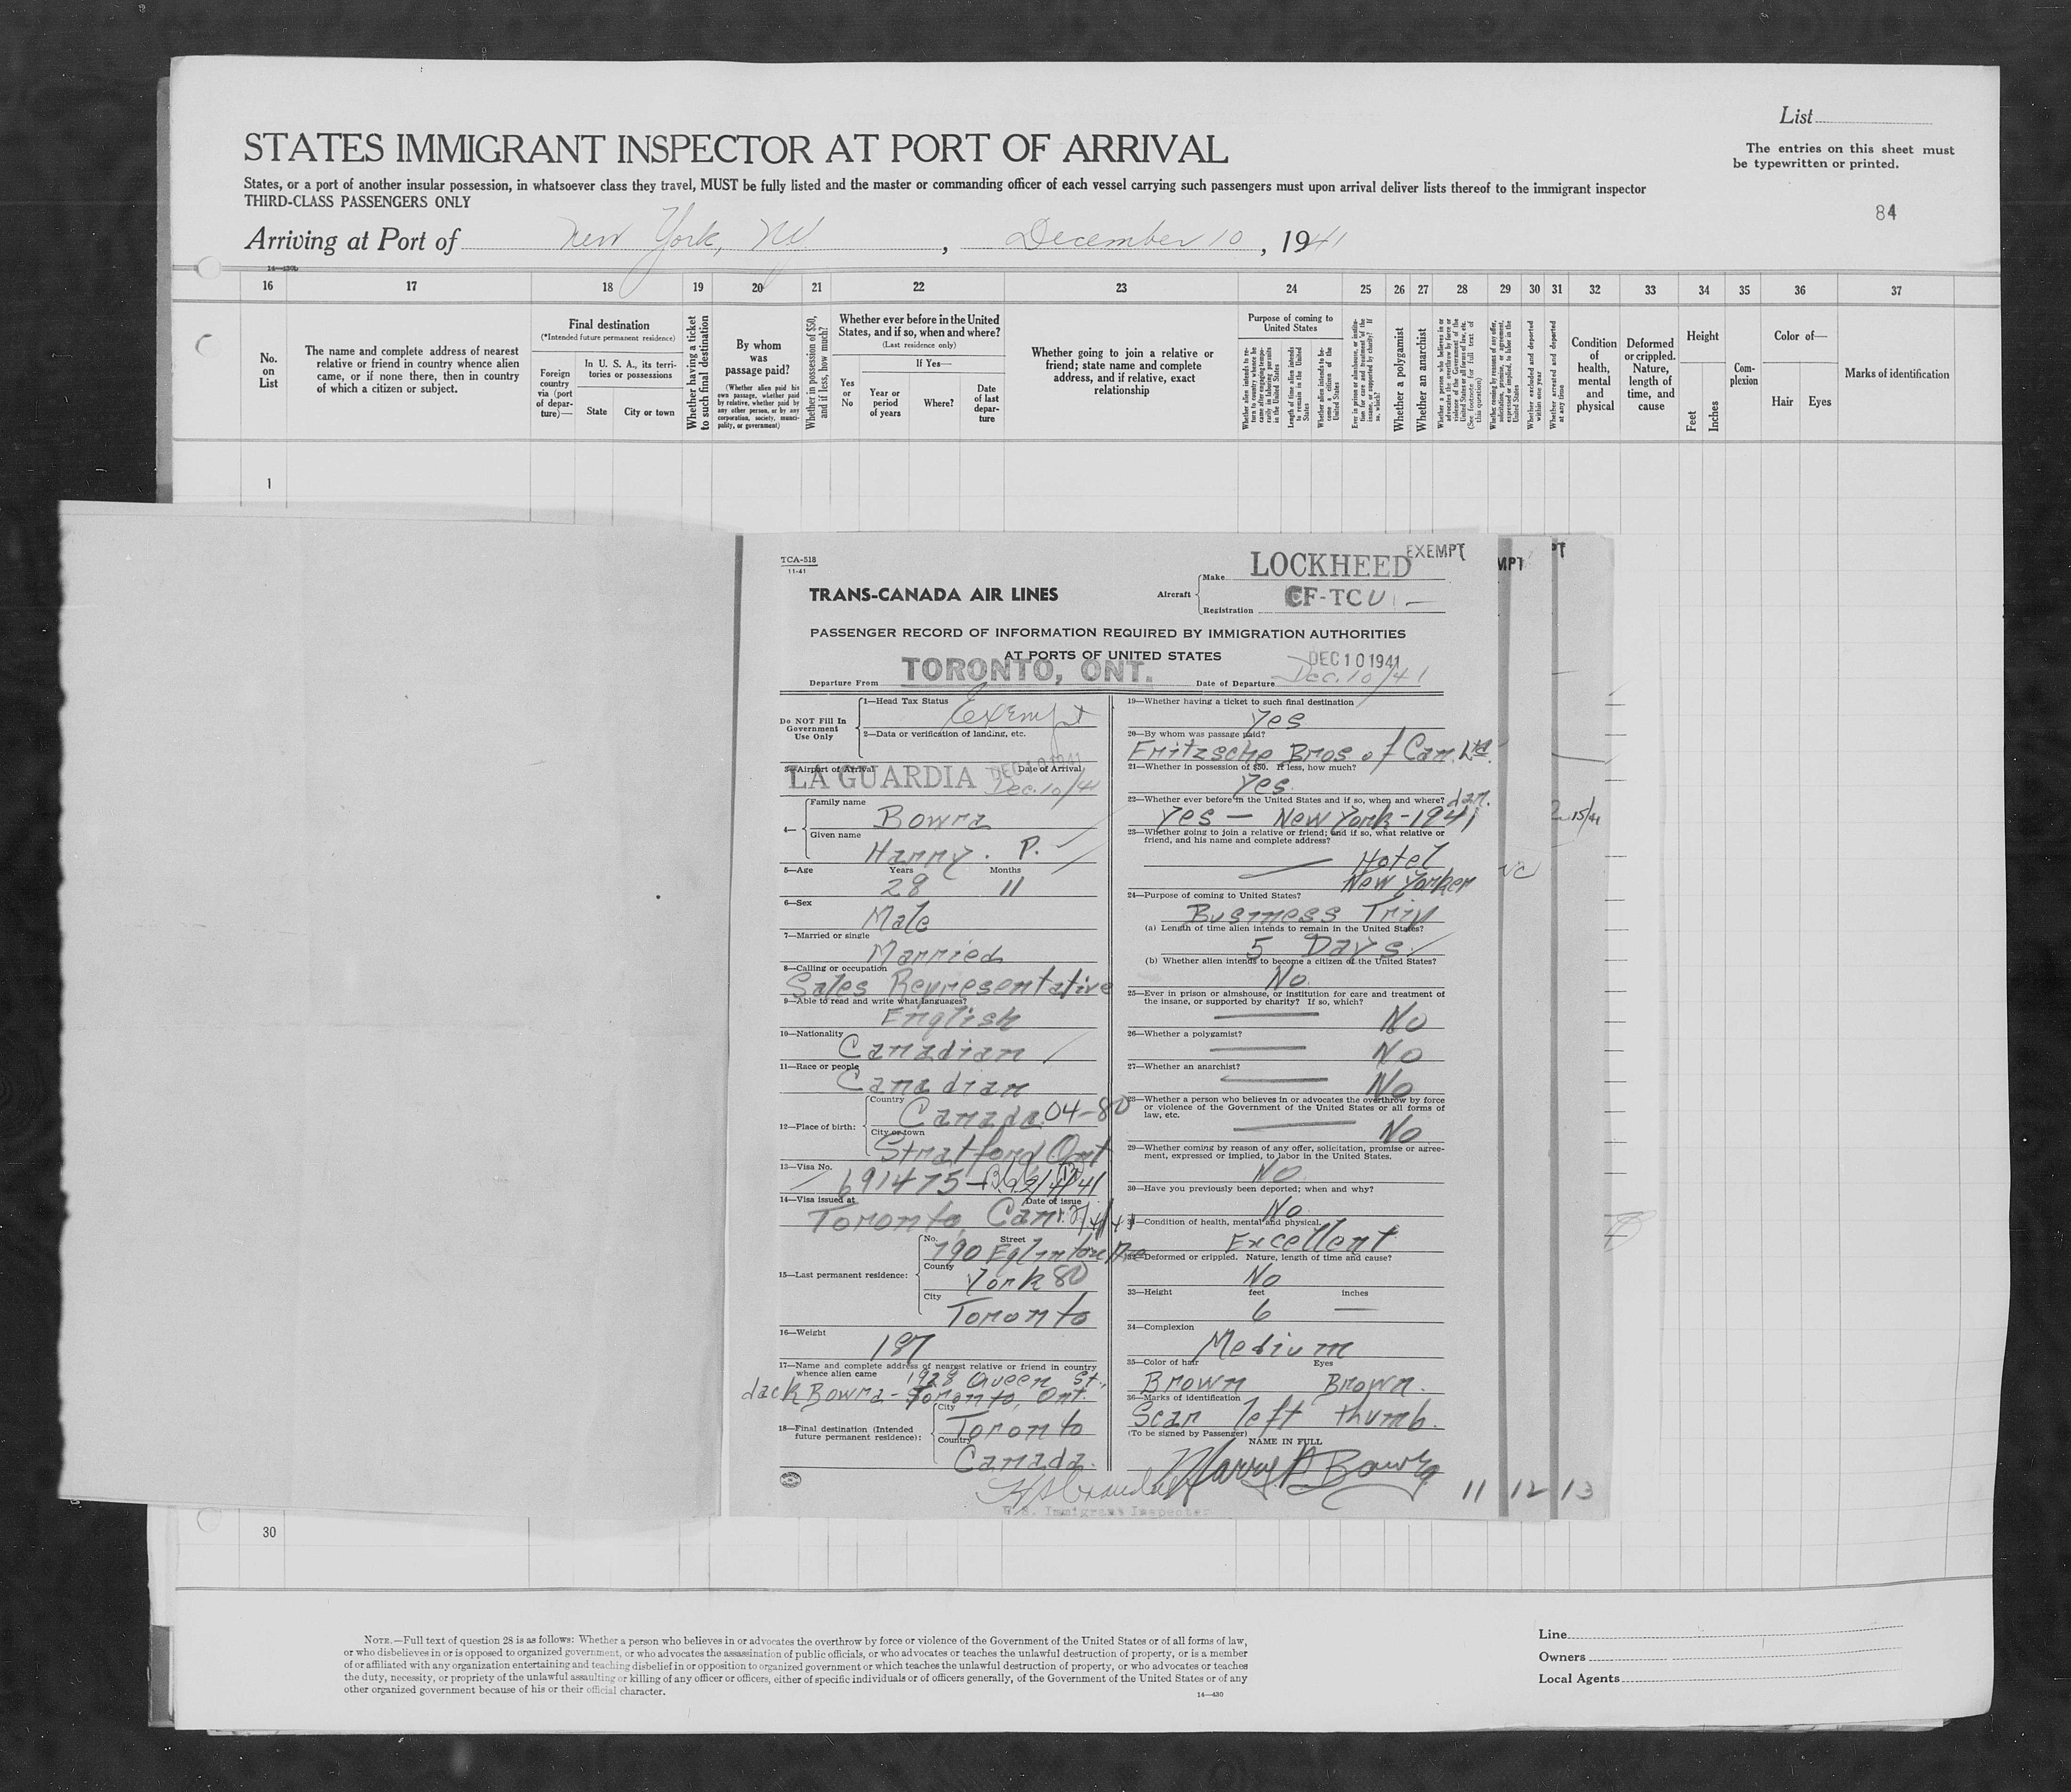 List
STATES IMMIGRANT INSPECTOR AT PORT OF ARRIVAL
The entries on this sheet must
be typewritten or printed.
States, or a port of another insular possession, in whatsoever class they travel, MUST be fully listed and the master or commanding officer of each vessel carrying such passengers must upon arrival deliver lists thereof to the immigrant inspector
THIRD-CLASS PASSENGERS ONLY
84
Arriving at Port of New York, NY, December 10, 1941
14—430b
16 17 18 19 20 21 22 23 24 25 26 27 28 29 30 31 32 33 34 35 36 37
No.
on
List
The name and complete address of nearest
relative or friend in country whence alien
came, or if none there, then in country
of which a citizen or subject.
Final destination
(*Intended future permanent residence)
Foreign
country
via (port
of depar-
ture)—
In U. S. A., its terri-
tories or possessions
State
City or town
Whether having a ticket
to such final destination
By whom
was
passage paid?
(Whether alien paid his
own passage, whether paid
by relative, whether paid by
any other person, or by any
corporation, society, munici-
pality, or government)
Whether in possession of $50,
and if less, how much?
Whether ever before in the United
States, and if so, when and where?
(Last residence only)
Yes
or
No
If Yes—
Year or
period
of years
Where?
Date
of last
depar-
ture
Whether going to join a relative or
friend; state name and complete
address, and if relative, exact
relationship
Purpose of coming to
United States
Whether alien intends to re-
turn to country whence he
came after engaging tempo-
rarily in laboring pursuits
in the United States
Length of time alien intends
to remain in the United
States
Whether alien intends to be-
come a citizen of the
United States
Ever in prison or almshouse, or institu-
tion for care and treatment of the
insane, or supported by charity? If
so, which?
Whether a polygamist
Whether an anarchist
Whether a person who believes in or
advocates the overthrow by force or
violence of the Government of the
United States or all forms of law, etc.
(See footnote for full text of
this question)
Whether coming by reason of any offer,
solicitation, promise, or agreement,
expressed or implied, to labor in the
United States
Whether excluded and deported
within one year
Whether arrested and deported
at any time
Condition
of
health,
mental
and
physical
Deformed
or crippled.
Nature,
length of
time, and
cause
Height
Feet
Inches
Com-
plexion
Color of—
Hair Eyes
Marks of identification
1
TCA-518
11-41
TRANS-CANADA AIR LINES
Aircraft
Make LOCKHEED
EXEMPT
MPT
PT
Registration CF-TCU
PASSENGER RECORD OF INFORMATION REQUIRED BY IMMIGRATION AUTHORITIES
AT PORTS OF UNITED STATES
DEC 10 1941
Departure From TORONTO, ONT.
Date of Departure Dec. 10/41
Do NOT Fill In
Government
Use Only
1—Head Tax Status
Exempt
2—Data or verification of landing, etc.
3—Airport of Arrival
LA GUARDIA
Date of Arrival
DEC 10 1941
Dec. 10/41
4—
Family name
Bowra
Given name
Harry. P.
5—Age
Years 28
Months 11
6—Sex
Male
7—Married or single
Married
8—Calling or occupation
Sales Representative
9—Able to read and write what languages?
English
10—Nationality
Canadian
11—Race or people
Canadian
12—Place of birth:
Country
Canada 04-80
City or town
Stratford Ont
13—Visa No.
691475
14—Visa issued at
Toronto, Can.
Date of issue
15—Last permanent residence:
No. Street
790 Eglinton Ave
County
York 80
City
Toronto
16—Weight
187
17—Name and complete address of nearest relative or friend in country
whence alien came
1928 Queen St.,
Jack Bowra - Toronto, Ont.
18—Final destination (Intended
future permanent residence):
City
Toronto
Country
Canada.
19—Whether having a ticket to such final destination
Yes
20—By whom was passage paid?
Fritzsche Bros. of Can. Ltd.
21—Whether in possession of $50. If less, how much?
Yes.
22—Whether ever before in the United States and if so, when and where?
Jan.
Yes — New York - 1941
15/41
23—Whether going to join a relative or friend; and if so, what relative or
friend, and his name and complete address?
Hotel
New Yorker
24—Purpose of coming to United States?
Business Trip
(a) Length of time alien intends to remain in the United States?
5 Days.
(b) Whether alien intends to become a citizen of the United States?
No.
25—Ever in prison or almshouse, or institution for care and treatment of
the insane, or supported by charity? If so, which?
No
26—Whether a polygamist?
No
27—Whether an anarchist?
No
28—Whether a person who believes in or advocates the overthrow by force
or violence of the Government of the United States or all forms of
law, etc.
No
29—Whether coming by reason of any offer, solicitation, promise or agree-
ment, expressed or implied, to labor in the United States.
No
30—Have you previously been deported; when and why?
No
31—Condition of health, mental and physical.
Excellent
32—Deformed or crippled. Nature, length of time and cause?
No
33—Height feet inches
6 —
34—Complexion
Medium
35—Color of hair Eyes
Brown Brown.
36—Marks of identification
Scar left thumb.
(To be signed by Passenger)
NAME IN FULL
Harry P Bowra
U.S. Immigrant Inspector
11 12 13
30
NOTE.—Full text of question 28 is as follows: Whether a person who believes in or advocates the overthrow by force or violence of the Government of the United States or of all forms of law,
or who disbelieves in or is opposed to organized government, or who advocates the assassination of public officials, or who advocates or teaches the unlawful destruction of property, or is a member
of or affiliated with any organization entertaining and teaching disbelief in or opposition to organized government or which teaches the unlawful destruction of property, or who advocates or teaches
the duty, necessity, or propriety of the unlawful assaulting or killing of any officer or officers, either of specific individuals or of officers generally, of the Government of the United States or of any
other organized government because of his or their official character.
14—430
Line
Owners
Local Agents